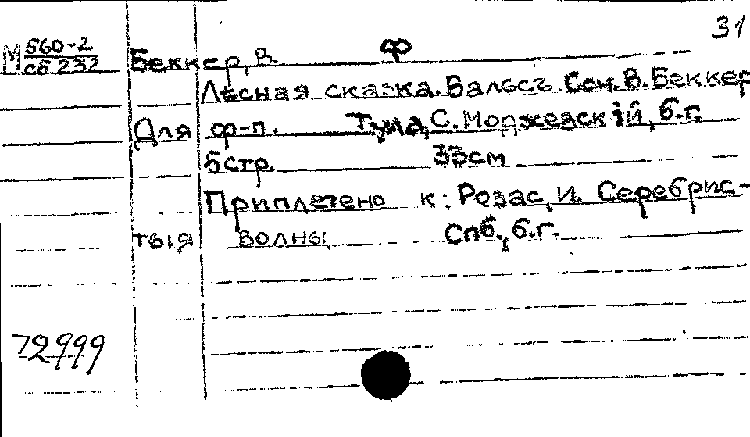 31
М 560-2 Беккер, В. Ф
сб 232
Лесная сказка. Вальсъ. Соч. В. Беккер
Для ф-п. Тула, С. Моржевскiй, б.г.
5стр. 33см
Приплетено к: Розас, И. Серебрис-
тыя волны Спб., б.г.
72999